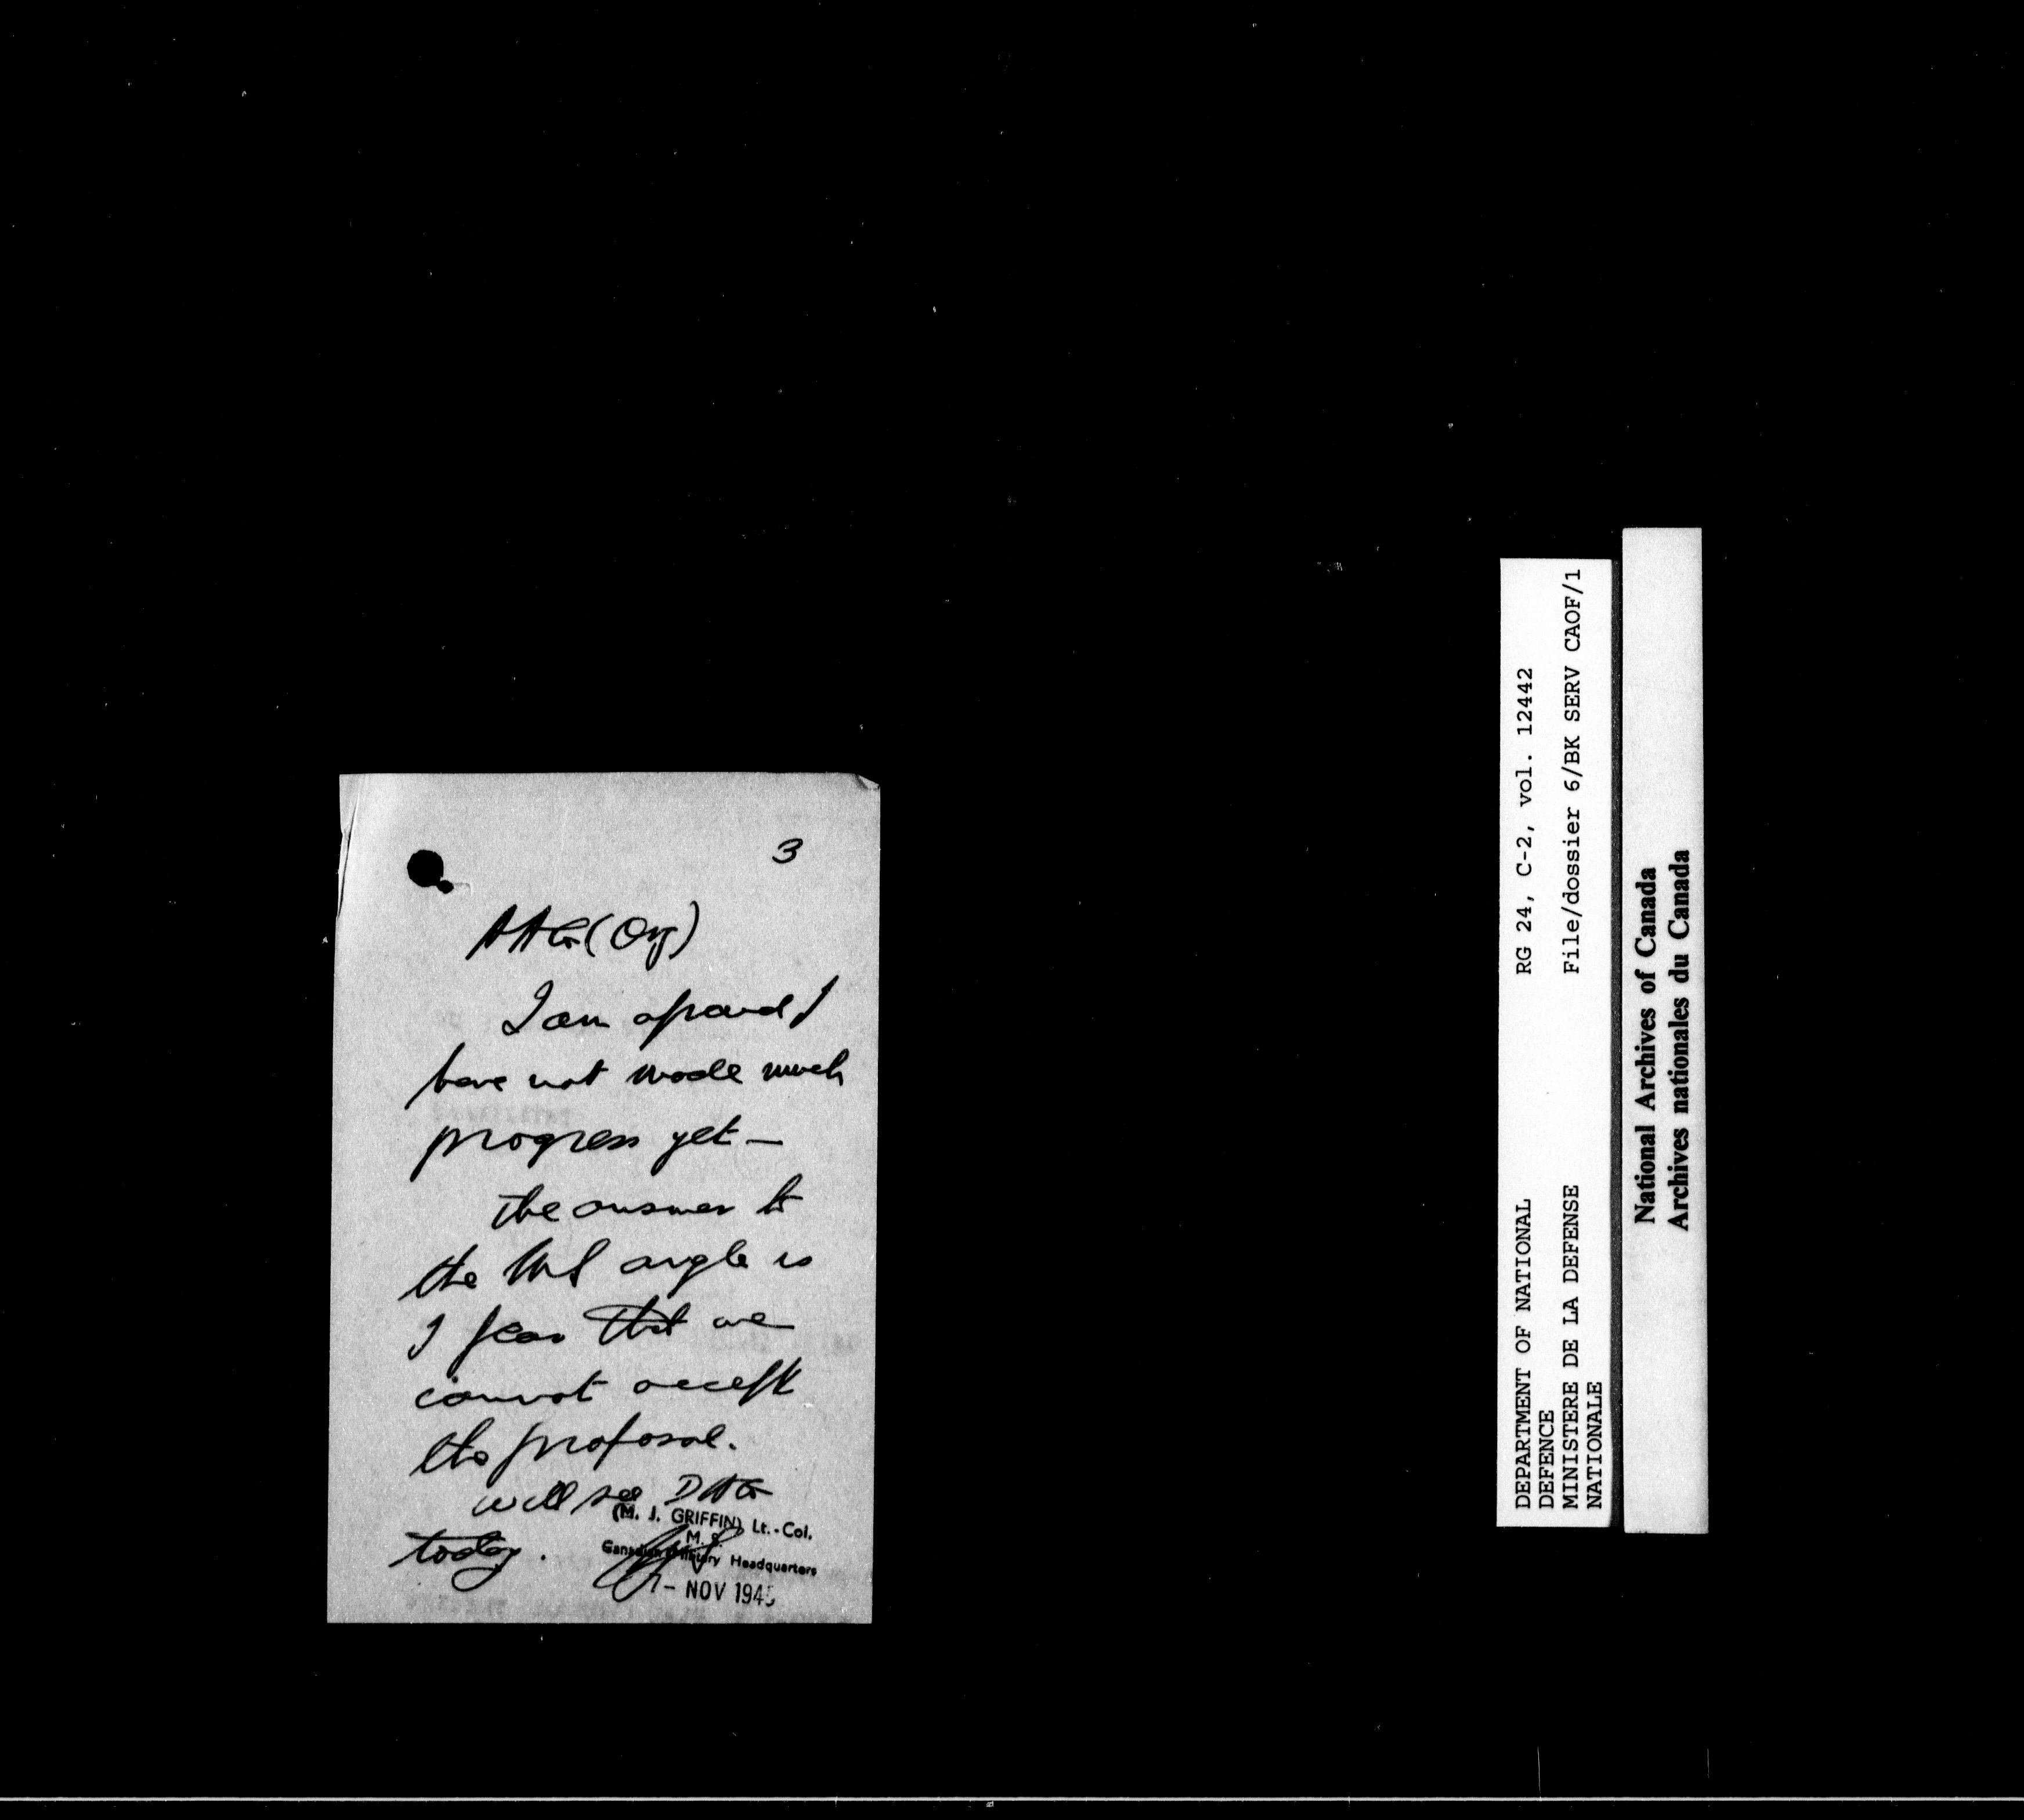 3
AAG (Org)
I am afraid I
have not made much
progress yet —
the answer to
the MS angle is
I fear that we
cannot accept
the proposal.
will see DAG
today.
(M. J. GRIFFIN) Lt.-Col.
M.S.
Canadian Military Headquarters
- NOV 1945
DEPARTMENT OF NATIONAL
DEFENCE
MINISTERE DE LA DEFENSE
NATIONALE
RG 24, C-2, vol. 12442
File/dossier 6/BK SERV CAOF/1
National Archives of Canada
Archives nationales du Canada